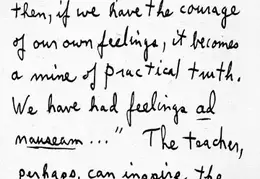 then, if we have the courage
of our own feelings, it becomes
a mine of practical truth.
We have had feelings ad
nauseam..." The teacher,
perhaps, can inspire the